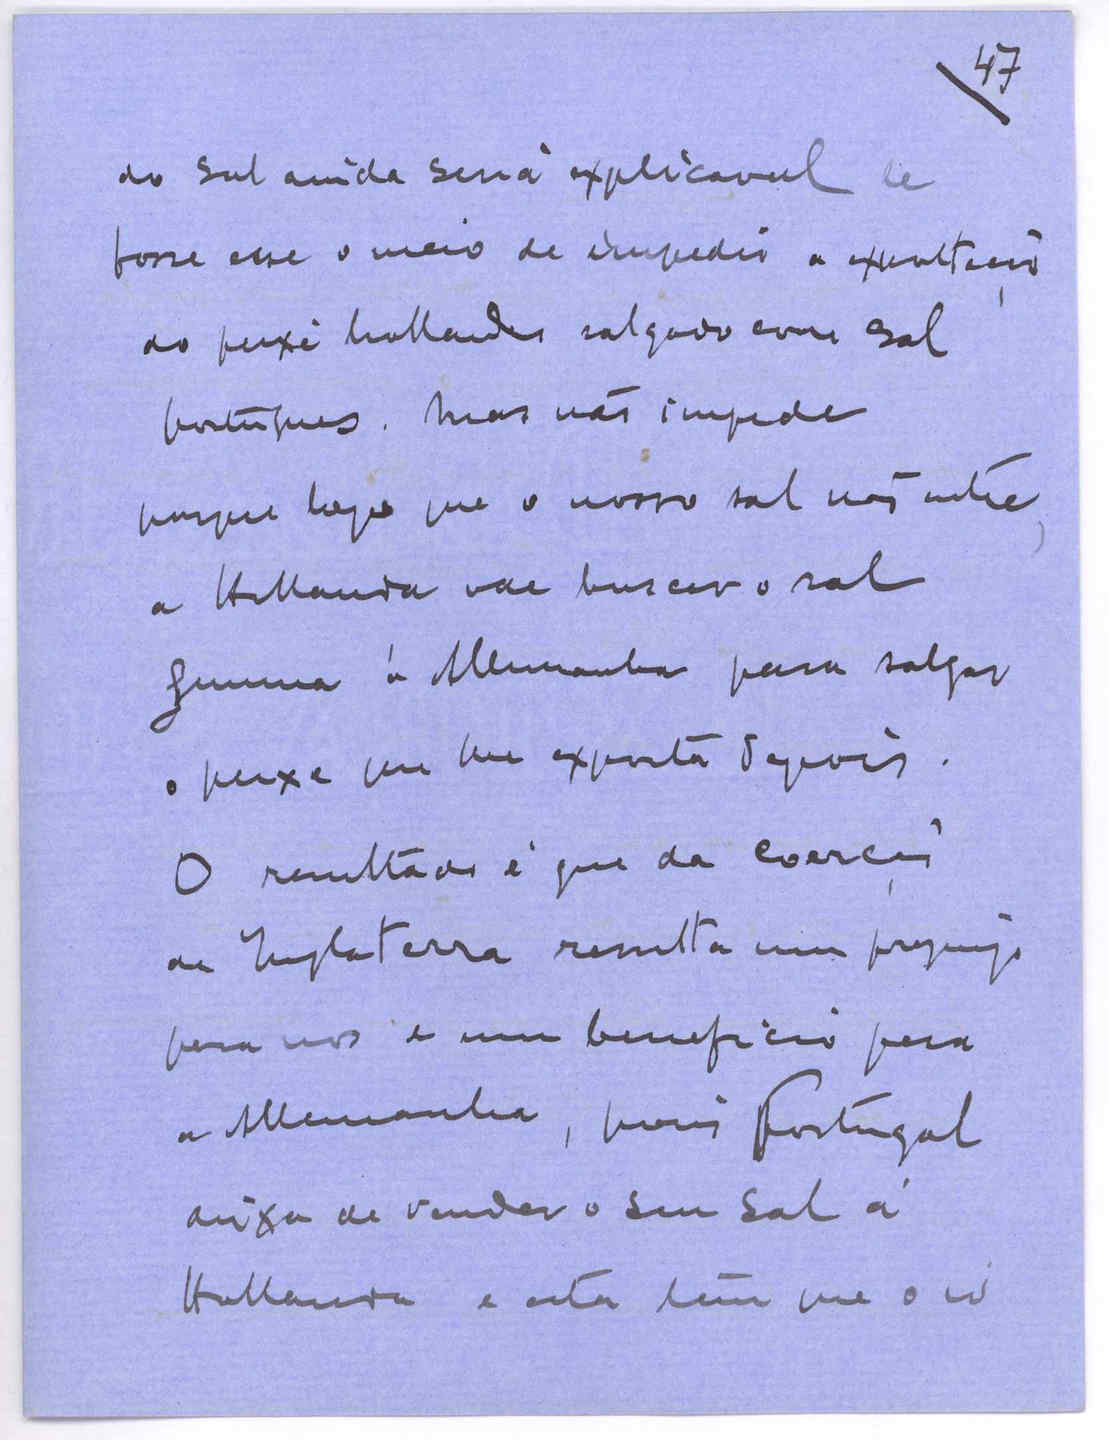 47
do sal ainda seria explicavel se
fosse esse o meio de impedir a exportação
do peixe hollandes salgado com sal
portugues. Mas não impede
porque logo que o nosso sal não entre,
a Hollanda vae buscar o sal
gemma á Allemanha para salgar
o peixe que lhe exporta depois.
O resultado é que da coerção
da Inglaterra resulta um prejuizo
para nos e um beneficio para
a Allemanha, pois Portugal
deixa de vender o seu sal á
Hollanda e esta tem que o ir